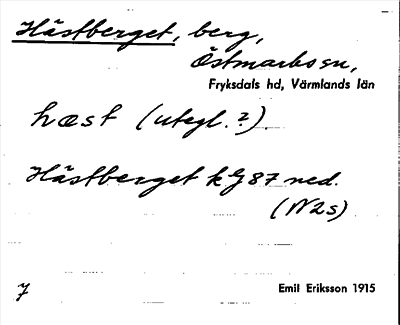 Hästberget, berg,
Östmarks sn,
Fryksdals hd, Värmlands län
hæst (utegl.?).
Hästberget k G 87 ned.
(N2s)
7
Emil Eriksson 1915